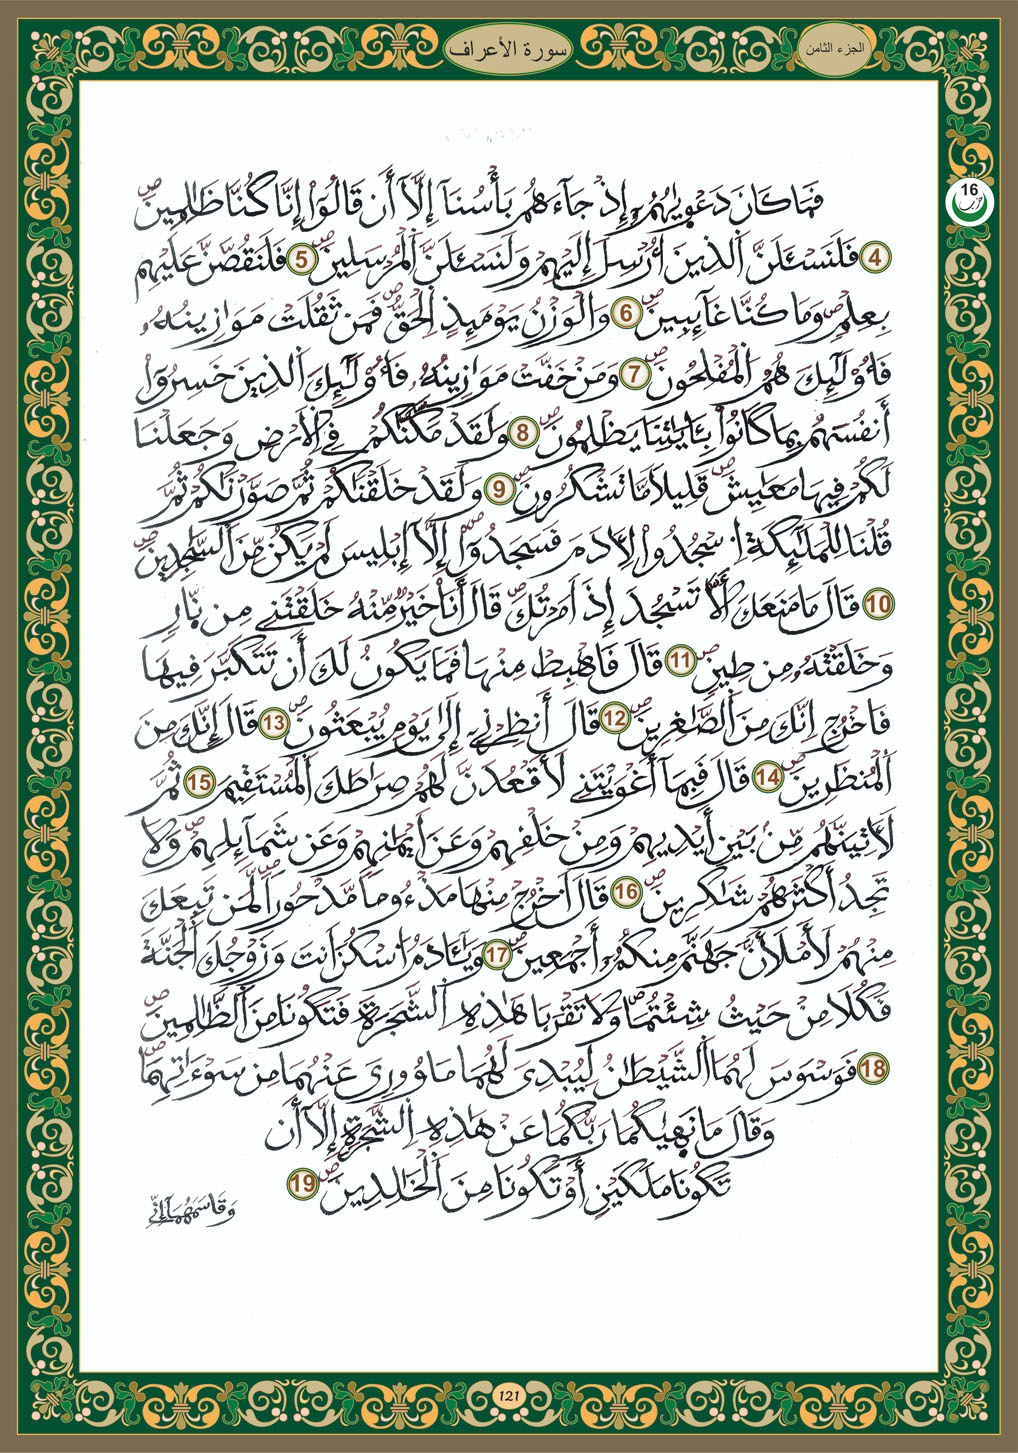 سورة الأعراف
الجزء الثامن
16
حزب
فَمَا كَانَ دَعْوٜيٰهُمُۥٓ إِذْ جَآءَهُم بَأْسُنَآ إِلَّآ أَن قَالُوٓاْ إِنَّا كُنَّا ظَٰلِمِينَ ص
4 فَلَنَسْـَٔلَنَّ اَلذِينَ أُرْسِلَ إِلَيْهِمْ وَلَنَسْـَٔلَنَّ اَلْمُرْسَلِينَ ص 5 فَلَنَقُصَّنَّ عَلَيْهِم
بِعِلْمٍ ص وَمَا كُنَّا غَآئِبِينَ ص 6 وَالْوَزْنُ يَوْمَئِذٍ اِلْحَقُّ ص فَمَن ثَقُلَتْ مَوَٰزِينُهُۥ
فَأُوْلَٰٓئِكَ هُمُ اُلْمُفْلِحُونَ ص 7 وَمَنْ خَفَّتْ مَوَٰزِينُهُۥ فَأُوْلَٰٓئِكَ اَلذِينَ خَسِرُوٓاْ
أَنفُسَهُم بِمَا كَانُواْ بِـَٔايَٰتِنَا يَظْلِمُونَ ص 8 وَلَقَدْ مَكَّنَّٰكُمْ فِي اِلَارْضِ وَجَعَلْنَا
لَكُمْ فِيهَا مَعَٰيِشَ ص قَلِيلاً مَّا تَشْكُرُونَ ص 9 وَلَقَدْ خَلَقْنَٰكُمْ ثُمَّ صَوَّرْنَٰكُمْ ثُمَّ
قُلْنَا لِلْمَلَٰٓئِكَةِ اِ۟سْجُدُواْ لِأَدَمَ فَسَجَدُوٓاْ ص إِلَّآ إِبْلِيسَ لَمْ يَكُن مِّنَ اَلسَّٰجِدِينَ ص
10 قَالَ مَا مَنَعَكَ أَلَّا تَسْجُدَ إِذَ اَمَرْتُكَ ص قَالَ أَنَا خَيْرٌ مِّنْهُ خَلَقْتَنِے مِن نّ۪ارٍ
وَخَلَقْتَهُۥ مِن طِينٍ ص 11 قَالَ فَاهْبِطْ مِنْهَا فَمَا يَكُونُ لَكَ أَن تَتَكَبَّرَ فِيهَا
فَاخْرُجِ اِنَّكَ مِنَ اَلصَّٰغِرِينَ ص 12 قَالَ أَنظِرْنِے إِلَىٰ يَوْمِ يُبْعَثُونَ ص 13 قَالَ إِنَّكَ مِنَ
اَلْمُنظَرِينَ ص 14 قَالَ فَبِمَآ أَغْوَيْتَنِے لَأَقْعُدَنَّ لَهُمْ صِرَٰطَكَ اَلْمُسْتَقِيمَ 15 ثُمَّ
لَأَتِيَنَّهُم مِّنۢ بَيْنِ أَيْدِيهِمْ وَمِنْ خَلْفِهِمْ وَعَنَ اَيْمَٰنِهِمْ وَعَن شَمَآئِلِهِمْ ص وَلَا
تَجِدُ أَكْثَرَهُمْ شَٰكِرِينَ ص 16 قَالَ اَخْرُجْ مِنْهَا مَذْءُوماً مَّدْحُوراً لَّمَن تَبِعَكَ
مِنْهُمْ لَأَمْلَأَنَّ جَهَنَّمَ مِنكُمُۥٓ أَجْمَعِينَ ص 17 وَيَٰٓـَٔادَمُ اُ۟سْكُنَ اَنتَ وَزَوْجُكَ اَلْجَنَّةَ
فَكُلَا مِنْ حَيْثُ شِئْتُمَا ص وَلَا تَقْرَبَا هَٰذِهِ اِلشَّجَرَةَ فَتَكُونَا مِنَ اَلظَّٰلِمِينَ ص
18 فَوَسْوَسَ لَهُمَا اَلشَّيْطَٰنُ لِيُبْدِيَ لَهُمَا مَا وُۥرِيَ عَنْهُمَا مِن سَوْءَٰتِهِمَا ص
وَقَالَ مَا نَهٜيٰكُمَا رَبُّكُمَا عَنْ هَٰذِهِ اِلشَّجَرَةِ إِلَّآ أَن
تَكُونَا مَلَكَيْنِ أَوْ تَكُونَا مِنَ اَلْخَٰلِدِينَ ص 19
وَقَاسَمَهُمَآ إِنِّے
121